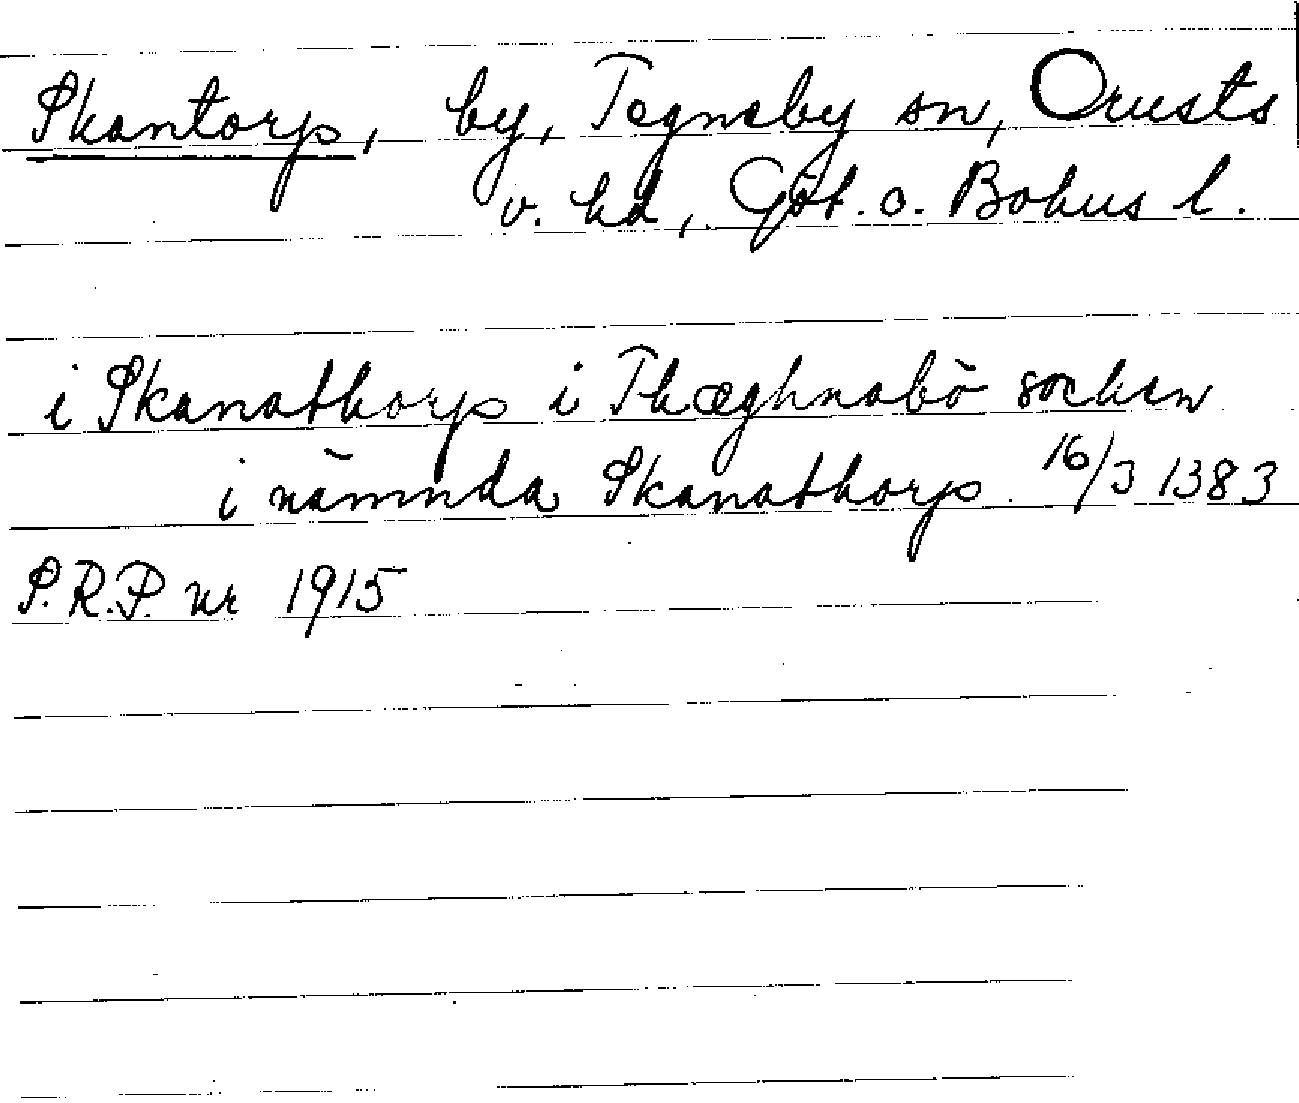 Skantorp, by, Tegneby sn, Orusts
v. hd, Göt. o. Bohus l.
i Skanathorp i Thæghnabö sochen
i nämnda Skanathorp 16/3 1383
S.R.P. nr 1915